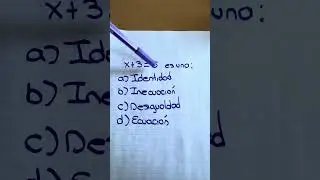 x+3= es uno:
a) Identidad
b) Inecuación
c) Desigualdad
d) Ecuación